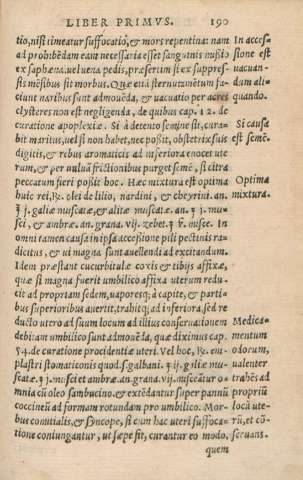 LIBER PRIMVS. 190
tio, nisi timeatur suffocatio, & mors repentina: nam
ad prohibẽdam eam necessaria esset sanguinis missio
ex saphæna, vel uena pedis, præsertim si ex suppres-
sis mẽsibus sit morbus. Quæ eniã sternutamẽtum fa-
ciunt naribus sunt admouẽda, & uacuatio per acres
clysteres non est negligenda, de quibus cap. 12. de
curatione apoplexiæ. Si à detento semine sit, cura-
bit maritus, uel si non habet, nec possit, obstetrix suis
digitis, & rebus aromaticis ad inferiora euocet ute
rum, & per uuluã frictionibus purget semẽ, si citra
peccatum fieri possit hoc. Hæc mixtura est optima
huic rei, ℞. olei de lilio, nardini, & cheyrini. an.
ʒ j. galiæ muscatæ, & aliitæ muscatæ. an. ʒ j. mu-
sci, & ambræ. an. grana. vij. zebet. ʒ ß. misce. In
omni tamen causa in ipsa accessione pili pectinis ra-
dicitus, & ui magna sunt auellendi ad excitandum.
Idem præstant cucurbitulæ coxis & tibijs affixæ,
quæ si magna fuerit umbilico affixa uterum redu-
cit ad propriam sedem, uaporesq; à capite, & parti-
bus superioribus auertit, trahitq; ad inferiora, sed re
ducto utero ad suum locum ad illius conseruationem
debitam umbilico sunt admouẽda, quæ diximus cap.
54. de curatione procidentiæ uteri. Vel hoc, ℞. em-
plastri stomaticonis quod. s. galbani. ʒ ij. galiæ mu-
scatæ. ʒ j. musci et ambræ. an. grana. vij. misceãtur o-
mnia cũ oleo sambucino, & extẽdantur super pannũ
coccineũ ad formam rotundam pro umbilico. Mor-
bus comitialis, & syncope, si cum hac uteri suffoca-
tione coniungantur, ut sæpe fit, curantur eo modo,
quem
In accesu
sione est
uacuan-
dum ali=
quando.
Si causa
est semẽ.
Optima
mixtura.
Medica=
mentum
odorum,
ualenter
trahẽs ad
propriũ
locũ ute-
rũ, et cõ=
seruans.